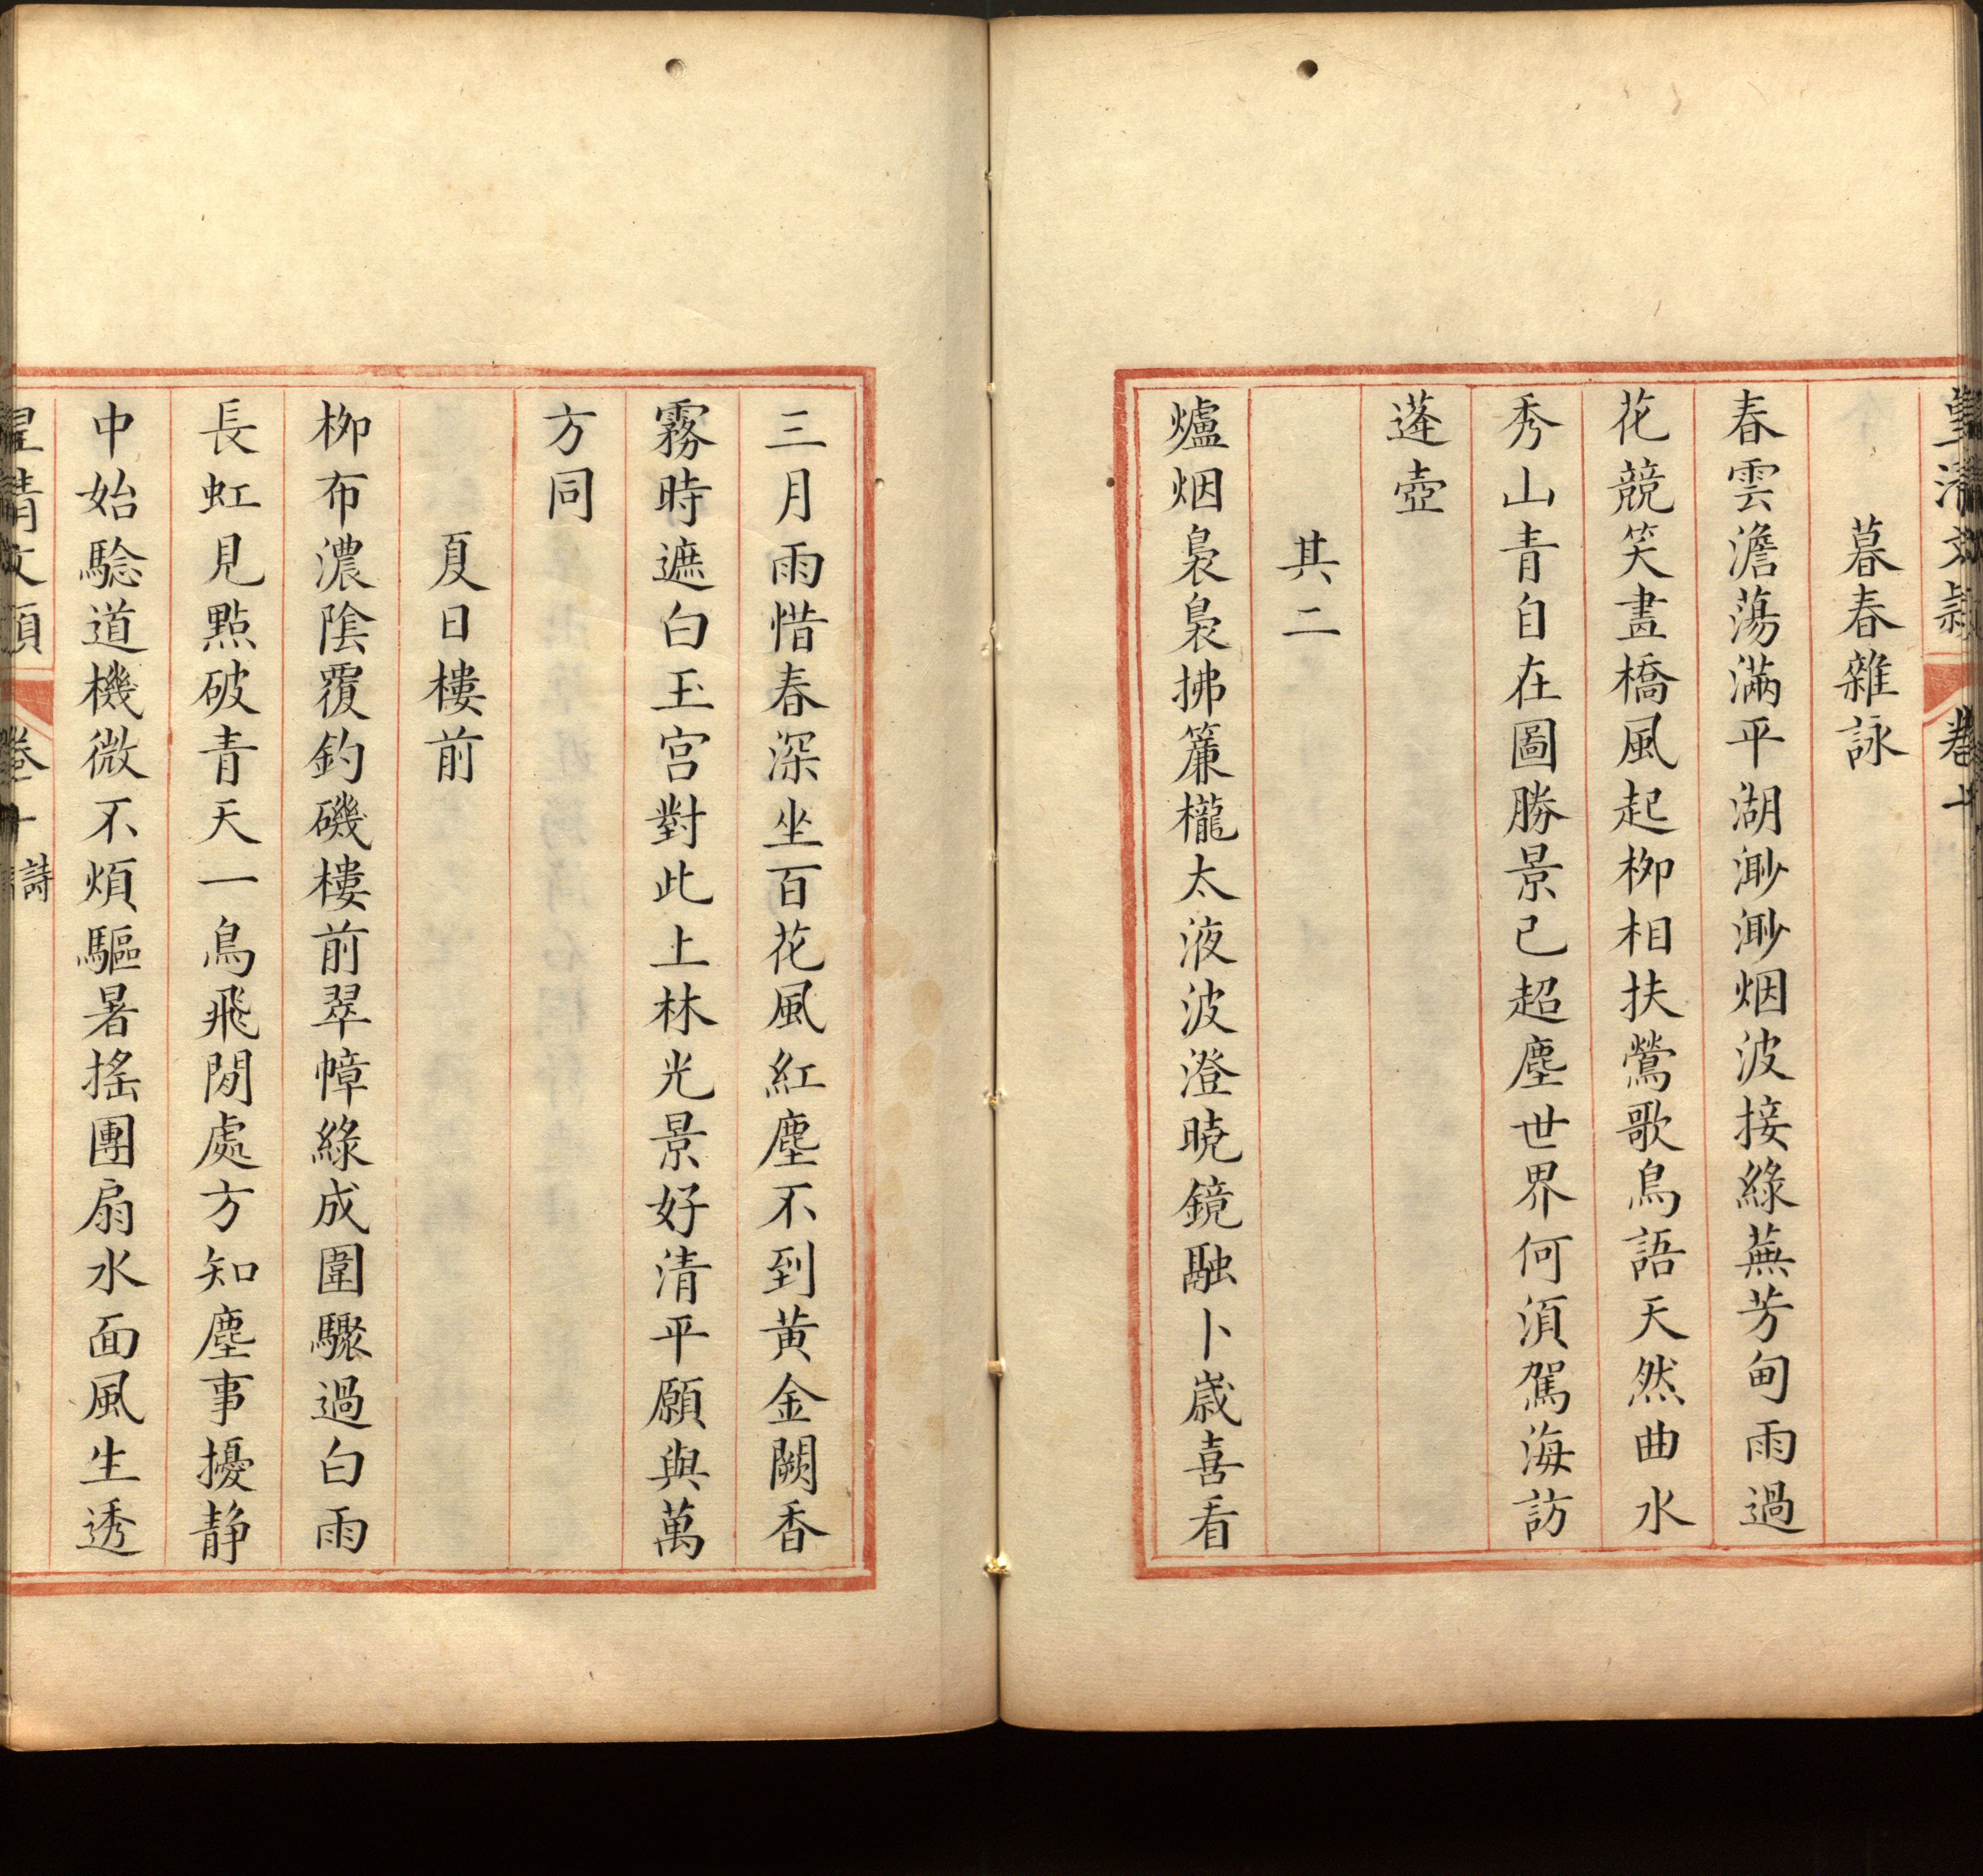 皇清文穎 卷十
暮春雜詠
春雲澹蕩滿平湖渺渺烟波接綠蕪芳甸雨過
花競笑畫橋風起柳相扶鶯歌鳥語天然曲水
秀山青自在圖勝景已超塵世界何須駕海訪
蓬壺
其二
爐烟裊裊拂簾櫳太液波澄曉鏡融卜歲喜看
三月雨惜春深坐百花風紅塵不到黃金闕香
霧時遮白玉宮對此上林光景好清平願與萬
方同
夏日樓前
柳布濃陰覆釣磯樓前翠幛綠成圍驟過白雨
長虹見點破青天一鳥飛閒處方知塵事擾静
中始驗道機微不煩驅暑搖團扇水面風生透
皇清文穎 卷十 詩